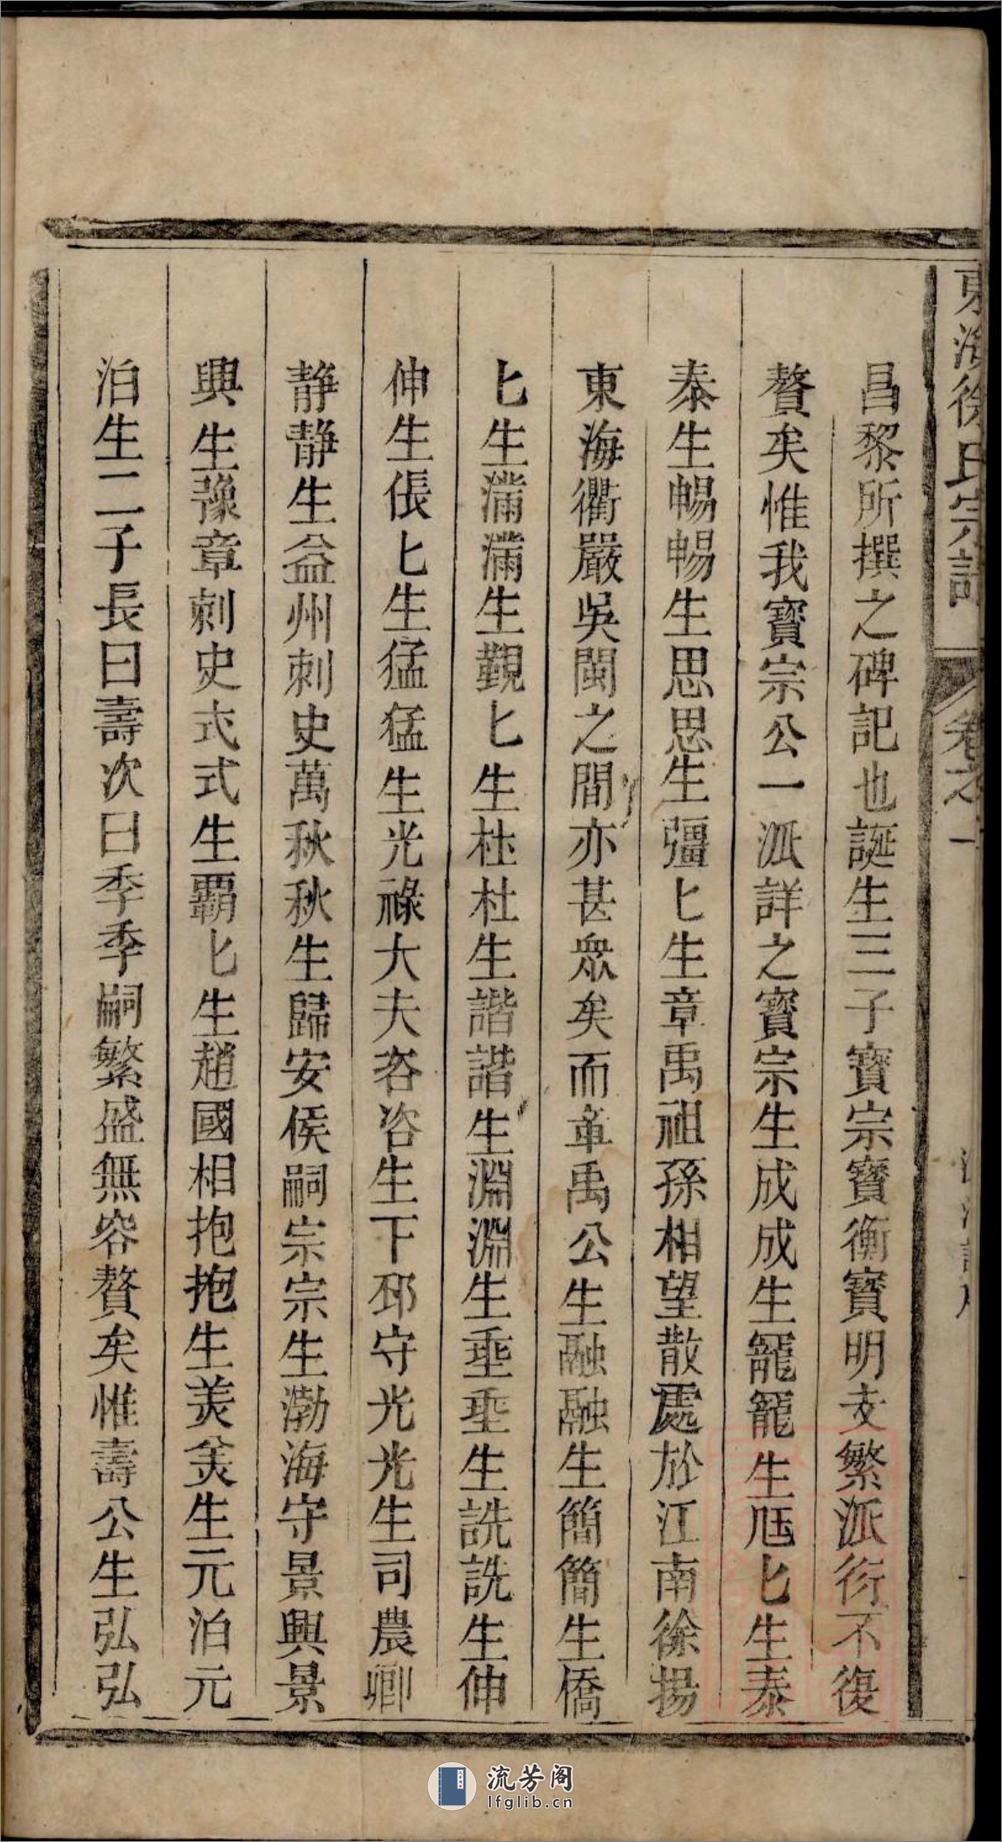 東海徐氏宗譜
卷之一
昌黎所撰之碑記也誕生三子寶宗寶衡寶明支繁派衍不復
贅矣惟我寶宗公一派詳之寶宗生成成生寵寵生尫匕生泰
泰生暢暢生思思生彊匕生章禹祖孫相望散處於江南徐揚
東海衢嚴吳閩之間亦甚衆矣而章禹公生融融生簡簡生僑
匕生滿滿生觀匕生杜杜生諧諧生淵淵生垂垂生詵詵生伸
伸生倀匕生猛猛生光祿大夫咨咨生下邳守光光生司農卿
静静生益州刺史萬秋秋生歸安侯嗣宗宗生渤海守景興景
興生豫章刺史式式生覇匕生趙國相抱抱生美美生元泊元
泊生二子長曰壽次曰季季嗣繁盛無容贅矣惟壽公生弘弘
流芳阁
lfglib.cn